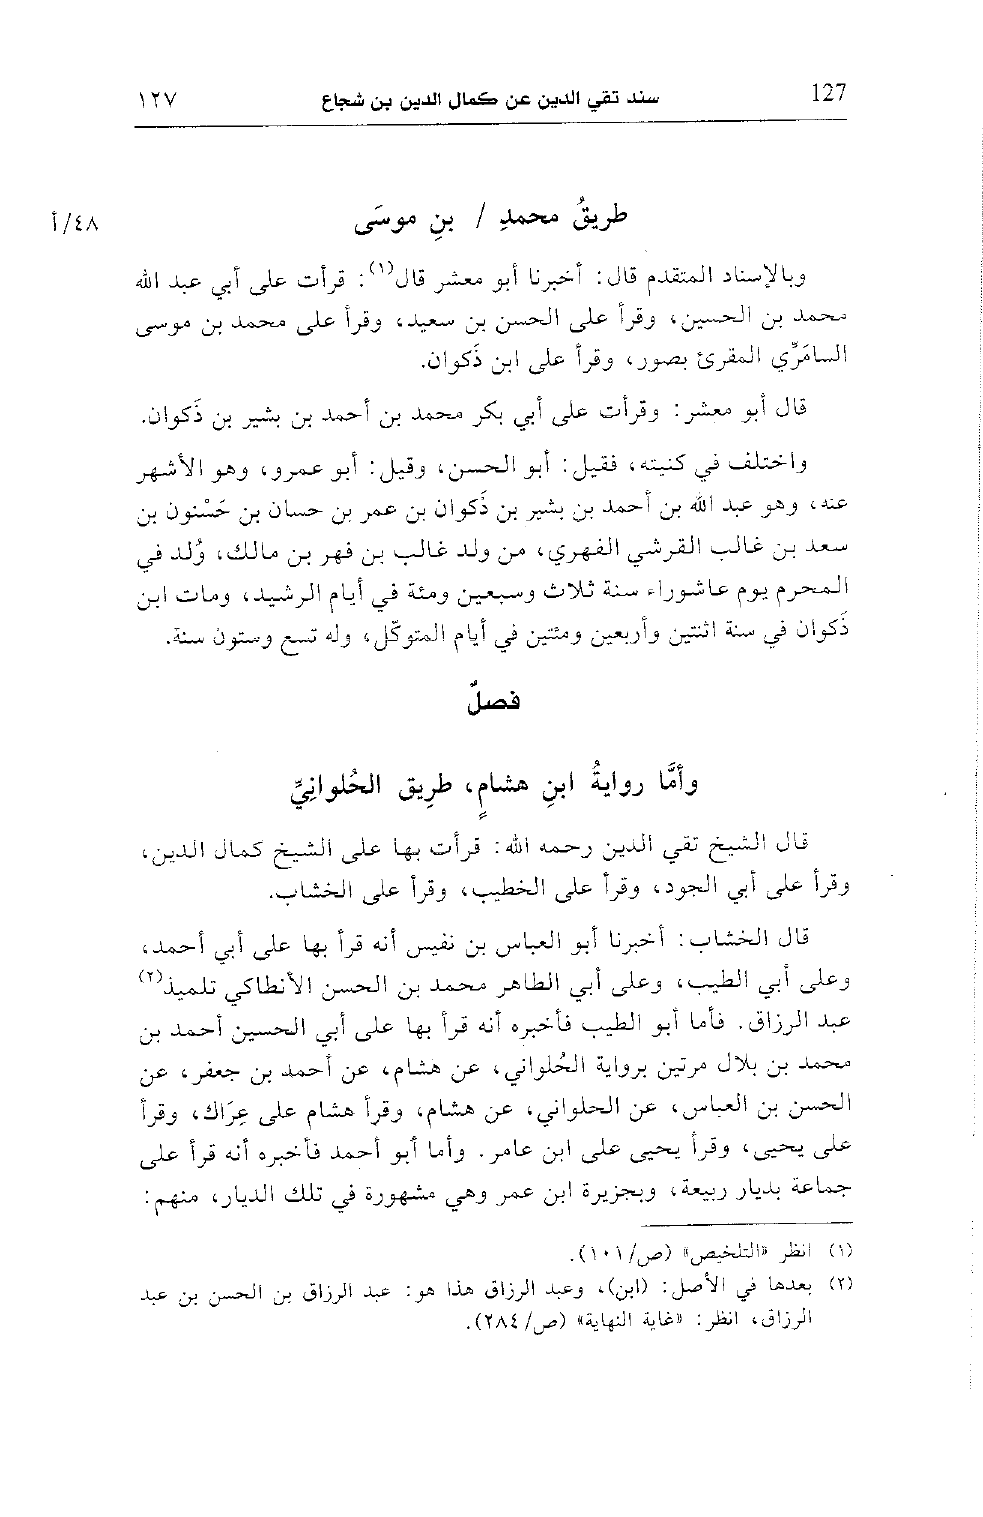 127 سند تقي الدين عن كمال الدين بن شجاع ١٢٧
طريقُ محمدِ / بنِ موسَى ٤٨/أ
وبالإسناد المتقدم قال: أخبرنا أبو معشر قال(١): قرأت على أبي عبد الله
محمد بن الحسين، وقرأ على الحسن بن سعيد، وقرأ على محمد بن موسى
السامَرِّي المقرئ بصور، وقرأ على ابن ذَكوان.
قال أبو معشر: وقرأت على أبي بكر محمد بن أحمد بن بشير بن ذَكوان.
واختلف في كنيته، فقيل: أبو الحسن، وقيل: أبو عمرو، وهو الأشهر
عنه، وهو عبد الله بن أحمد بن بشير بن ذَكوان بن عمر بن حسان بن حَسْنون بن
سعد بن غالب القرشي الفهري، من ولد غالب بن فهر بن مالك، وُلد في
المحرم يوم عاشوراء سنة ثلاث وسبعين ومئة في أيام الرشيد، ومات ابن
ذَكوان في سنة اثنتين وأربعين ومئتين في أيام المتوكّل، وله تسع وستون سنة.
فصلٌ
وأمَّا روايةُ ابنِ هشامٍ، طرِيق الحُلوانِيِّ
قال الشيخ تقي الدين رحمه الله: قرأت بها على الشيخ كمال الدين،
وقرأ على أبي الجود، وقرأ على الخطيب، وقرأ على الخشاب.
قال الخشاب: أخبرنا أبو العباس بن نفيس أنه قرأ بها على أبي أحمد،
وعلى أبي الطيب، وعلى أبي الطاهر محمد بن الحسن الأنطاكي تلميذ(٢)
عبد الرزاق. فأما أبو الطيب فأخبره أنه قرأ بها على أبي الحسين أحمد بن
محمد بن بلال مرتين برواية الحُلواني، عن هشام، عن أحمد بن جعفر، عن
الحسن بن العباس، عن الحلواني، عن هشام، وقرأ هشام على عِرَاك، وقرأ
على يحيى، وقرأ يحيى على ابن عامر. وأما أبو أحمد فأخبره أنه قرأ على
جماعة بديار ربيعة، وبجزيرة ابن عمر وهي مشهورة في تلك الديار، منهم:
(١) انظر «التلخيص» (ص/١٠١).
(٢) بعدها في الأصل: (ابن)، وعبد الرزاق هذا هو: عبد الرزاق بن الحسن بن عبد
الرزاق، انظر: «غاية النهاية» (ص/٢٨٤).